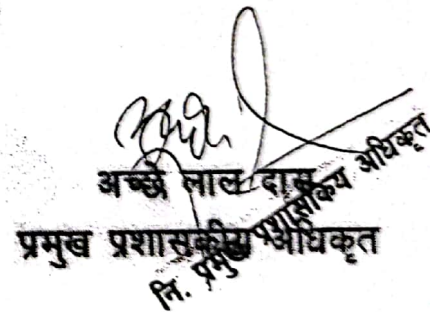 अच्छे लाल दास
प्रमुख प्रशासकीय अधिकृत
नि. प्रमुख प्रशासकिय अधिकृत